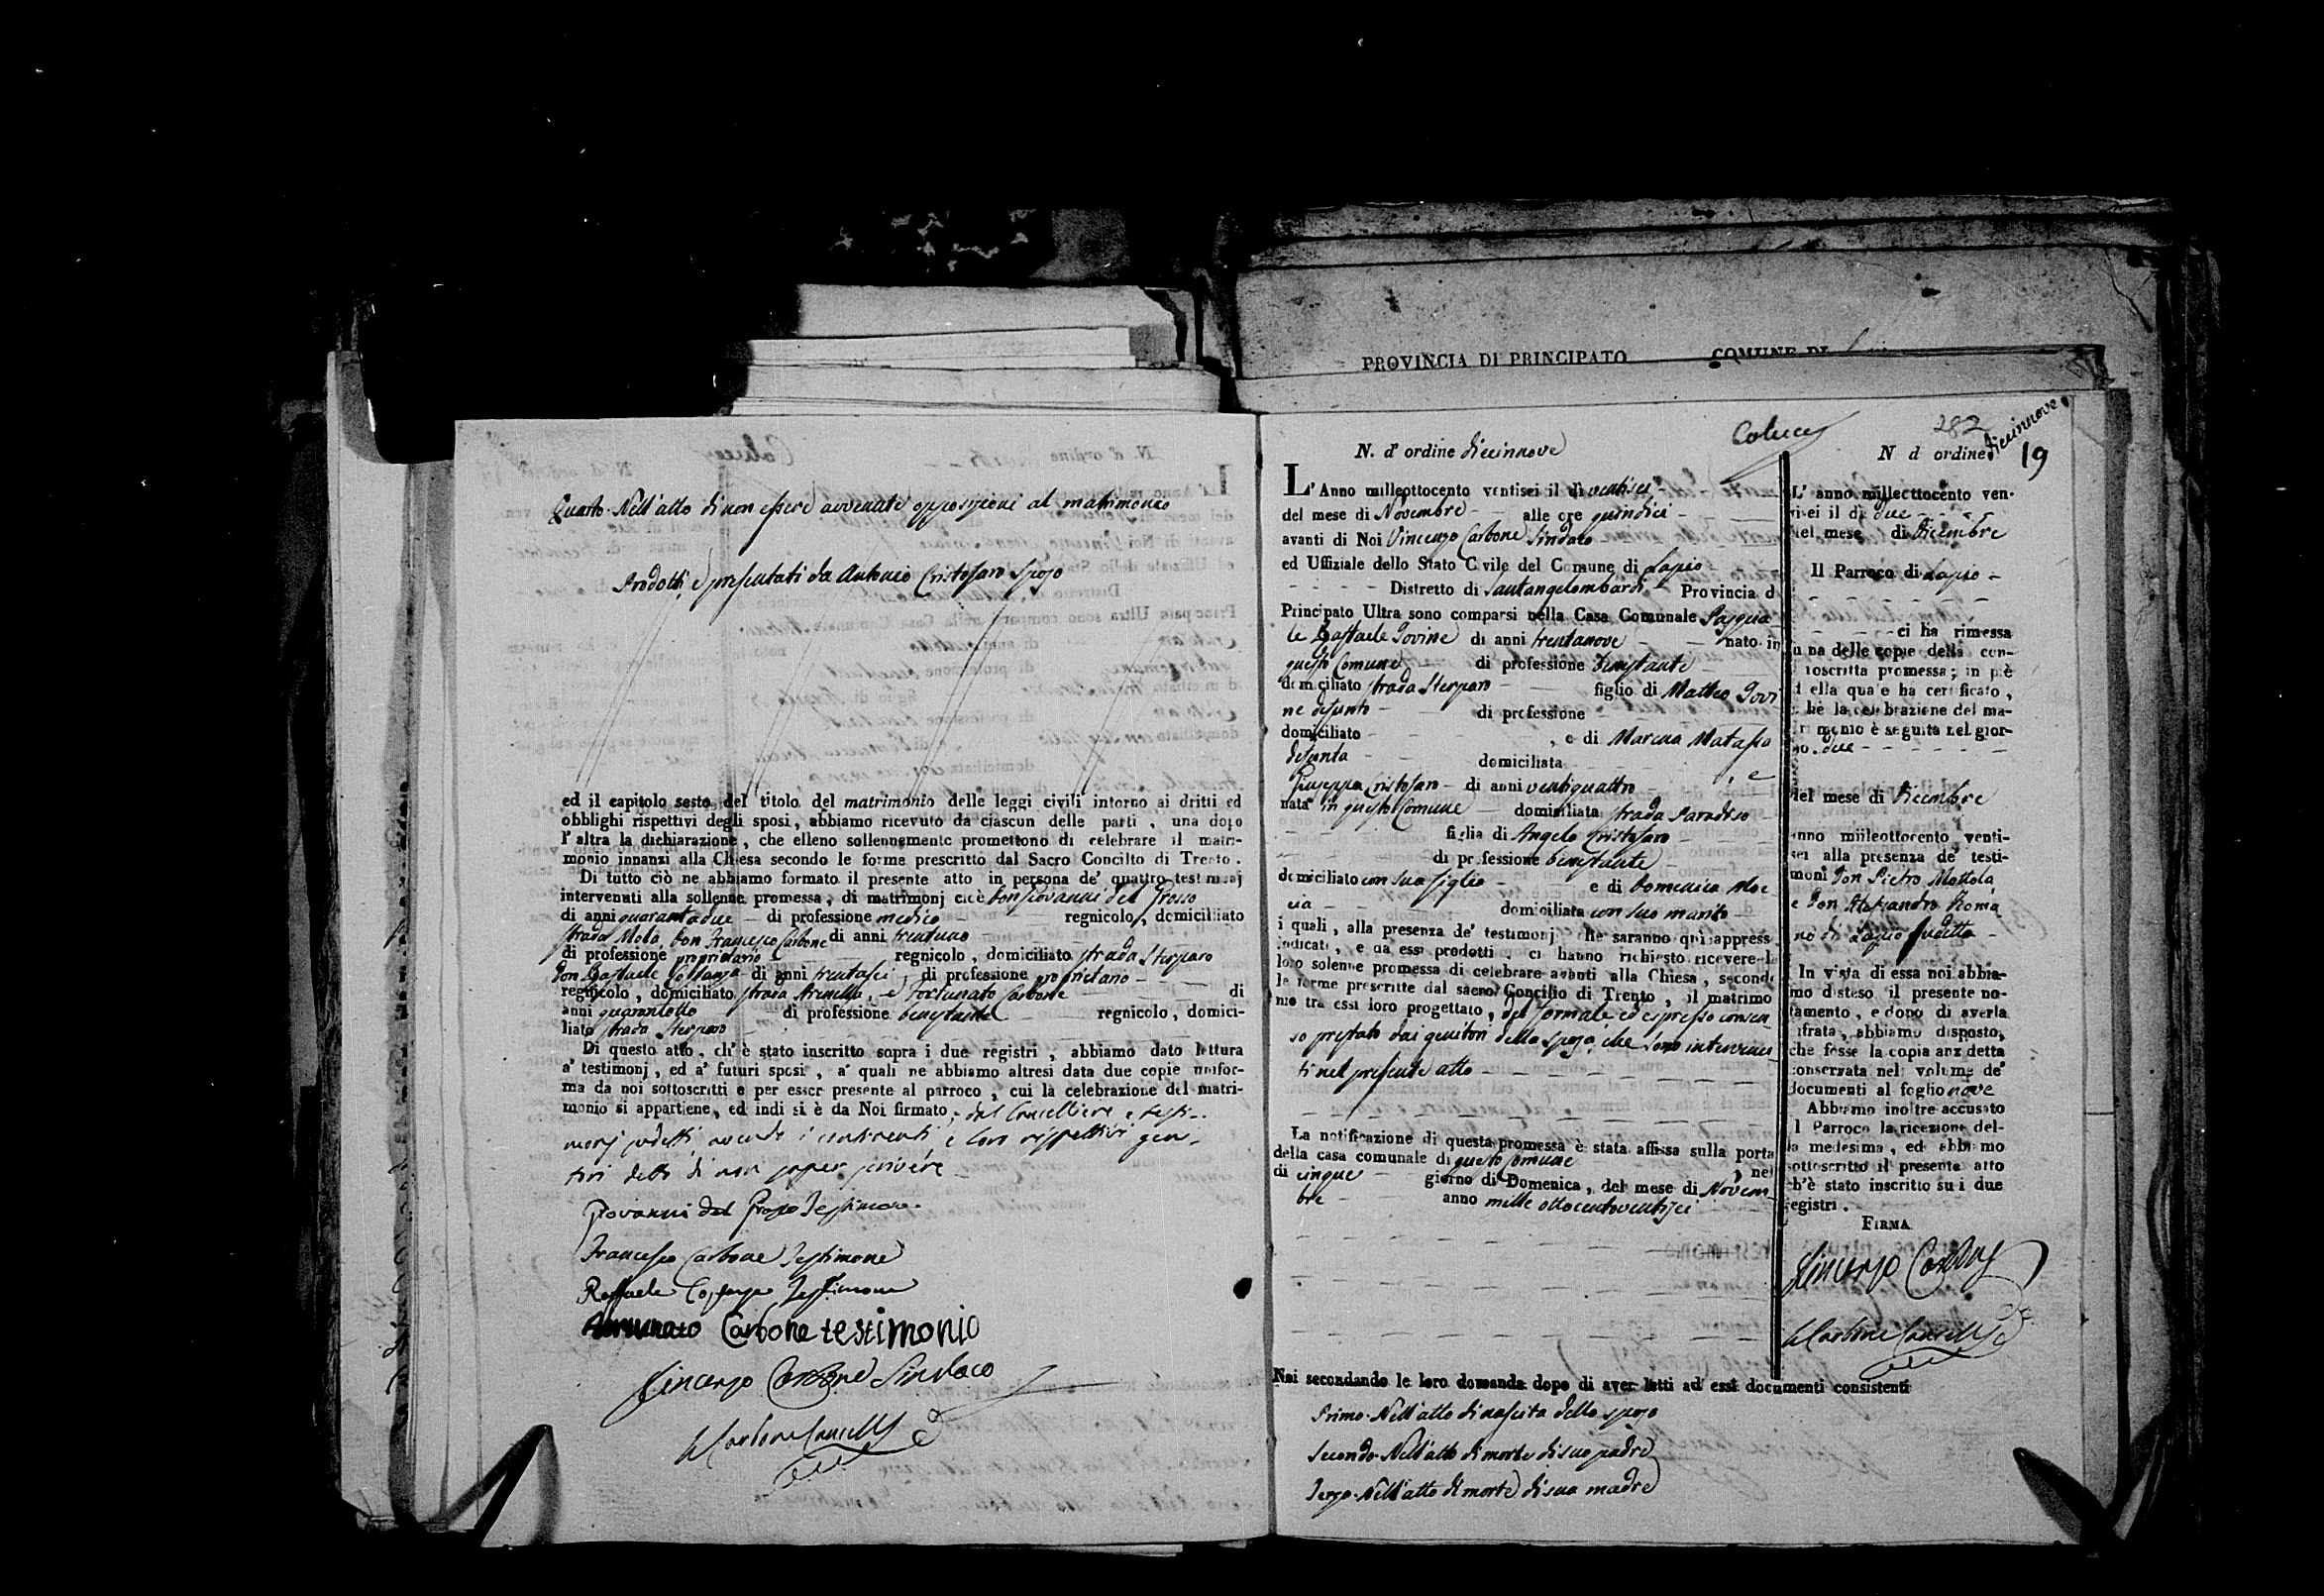 Quarto. Nell'atto di non essere avvenute opposizioni al matrimonio
Prodotti, e presentati da Antonio Cristofaro sposo
ed il capitolo sesto del titolo del matrimonio delle leggi civili intorno ai dritti ed
obblighi rispettivi degli sposi, abbiamo ricevuto da ciascun delle parti, una dopo
l'altra la dichiarazione, che elleno sollennemente promettono di celebrare il matri-
monio innanzi alla Chiesa secondo le forme prescritto dal Sacro Concilto di Trento.
Di tutto ciò ne abbiamo formato il presente atto in persona de' quattro testimonj
intervenuti alla sollenne promessa, di matrimonj cioè Don Giovanni del Grosso
di anni quarantadue di professione medico regnicolo, domiciliato
strada Mola, Don Francesco Carbone di anni trentuno
di professione proprietario regnicolo, domiciliato strada Sterparo
Don Raffaele Costanza di anni trentasei di professione proprietario
regnicolo, domiciliato strada e Fortunato Carbone di
anni quarantotto di professione benestante regnicolo, domici-
liato strada Sterparo
Di questo atto, ch'è stato inscritto sopra i due registri, abbiamo dato lettura
a' testimonj, ed a' futuri sposi, a' quali ne abbiamo altresì data due copie unifor-
ma da noi sottoscritti e per esser presente al parroco, cui la celebrazione del matri-
monio si appartiene, ed indi si è da Noi firmato, dal Cancelliere e testi-
monj sudetti, avendo i contraenti, e loro rispettivi geni-
tori detto di non saper scrivere
Giovanni del Grosso Testimone
Francesco Carbone Testimone
Raffaele Costanza Testimone
Fortunato Carbone testimonio
Vincenzo Carbone Sindaco
Carbone Cancell
PROVINCIA DI PRINCIPATO COMUNE DI
Colucci
N. d' ordine diecinnove
L'Anno milleottocento ventisei il dì ventisei
del mese di Novembre alle ore quindici
avanti di Noi Vincenzo Carbone Sindaco
ed Uffiziale dello Stato Civile del Comune di Lapio
Distretto di Santangelombardi Provincia d
Principato Ultra sono comparsi nella Casa Comunale Pasqua
le Raffaele Iovine di anni trentanove nato in
questo Comune di professione benestante
domiciliato strada Sterparo figlio di Matteo Iovi
ne defunto di professione
domiciliato , e di Marcia Matassa
defunta domiciliata , e
Giuseppa Cristofaro di anni ventiquattro
nata in questo Comune domiciliata strada Paradiso
figlia di Angelo Cristofaro
di professione benestante
domiciliato con sua figlia e di Domenica Moc
cia domiciliata con suo marito
i quali, alla presenza de' testimonj che saranno qui appress
indicati, e da essi prodotti, ci hanno richiesto ricevere l
loro solenne promessa di celebrare avanti alla Chiesa, second
le forme prescritte dal sacro Concilio di Trento, il matrimo
nio tra essi loro progettato, del formale ed espresso consen
so prestato dai genitori della sposa, che sono intervenu
ti nel presente atto
La notificazione di questa promessa è stata affissa sulla porta
della casa comunale di questo Comune nel
dì cinque giorno di Domenica, del mese di Novem
bre anno mille ottocentoventisei
Noi secondando le loro domanda dopo di aver letti ad essi documenti consistenti
Primo. Nell'atto di nascita dello sposo
Secondo. Nell'atto di morte di suo padre
Terzo. Nell'atto di morte di sua madre
282
N d ordine diecinnove
19
L' anno milleottocento ven-
tisei il dì due
del mese di Dicembre
Il Parroco di Lapio
ci ha rimessa
una delle copie della con-
troscritta promessa; in piè
della quale ha certificato,
che la celebrazione del ma-
trimonio è seguita nel gior-
no due
del mese di Dicembre
anno milleottocento venti-
sei alla presenza de' testi-
moni Don Pietro Mottola
e Don Alessandro Roma
no di Lapio sudetto
In vista di essa noi abbia-
mo disteso il presente no-
tamento, e dopo di averla
cifrata, abbiamo disposto,
che fosse la copia anzidetta
conservata nel volume de'
documenti al foglio nove
Abbiamo inoltre accusato
al Parroco la ricezione del-
la medesima, ed abbiamo
sottoscritto il presente atto
ch'è stato inscritto su i due
registri.
FIRMA
Vincenzo Carbone
Carbone Cancell